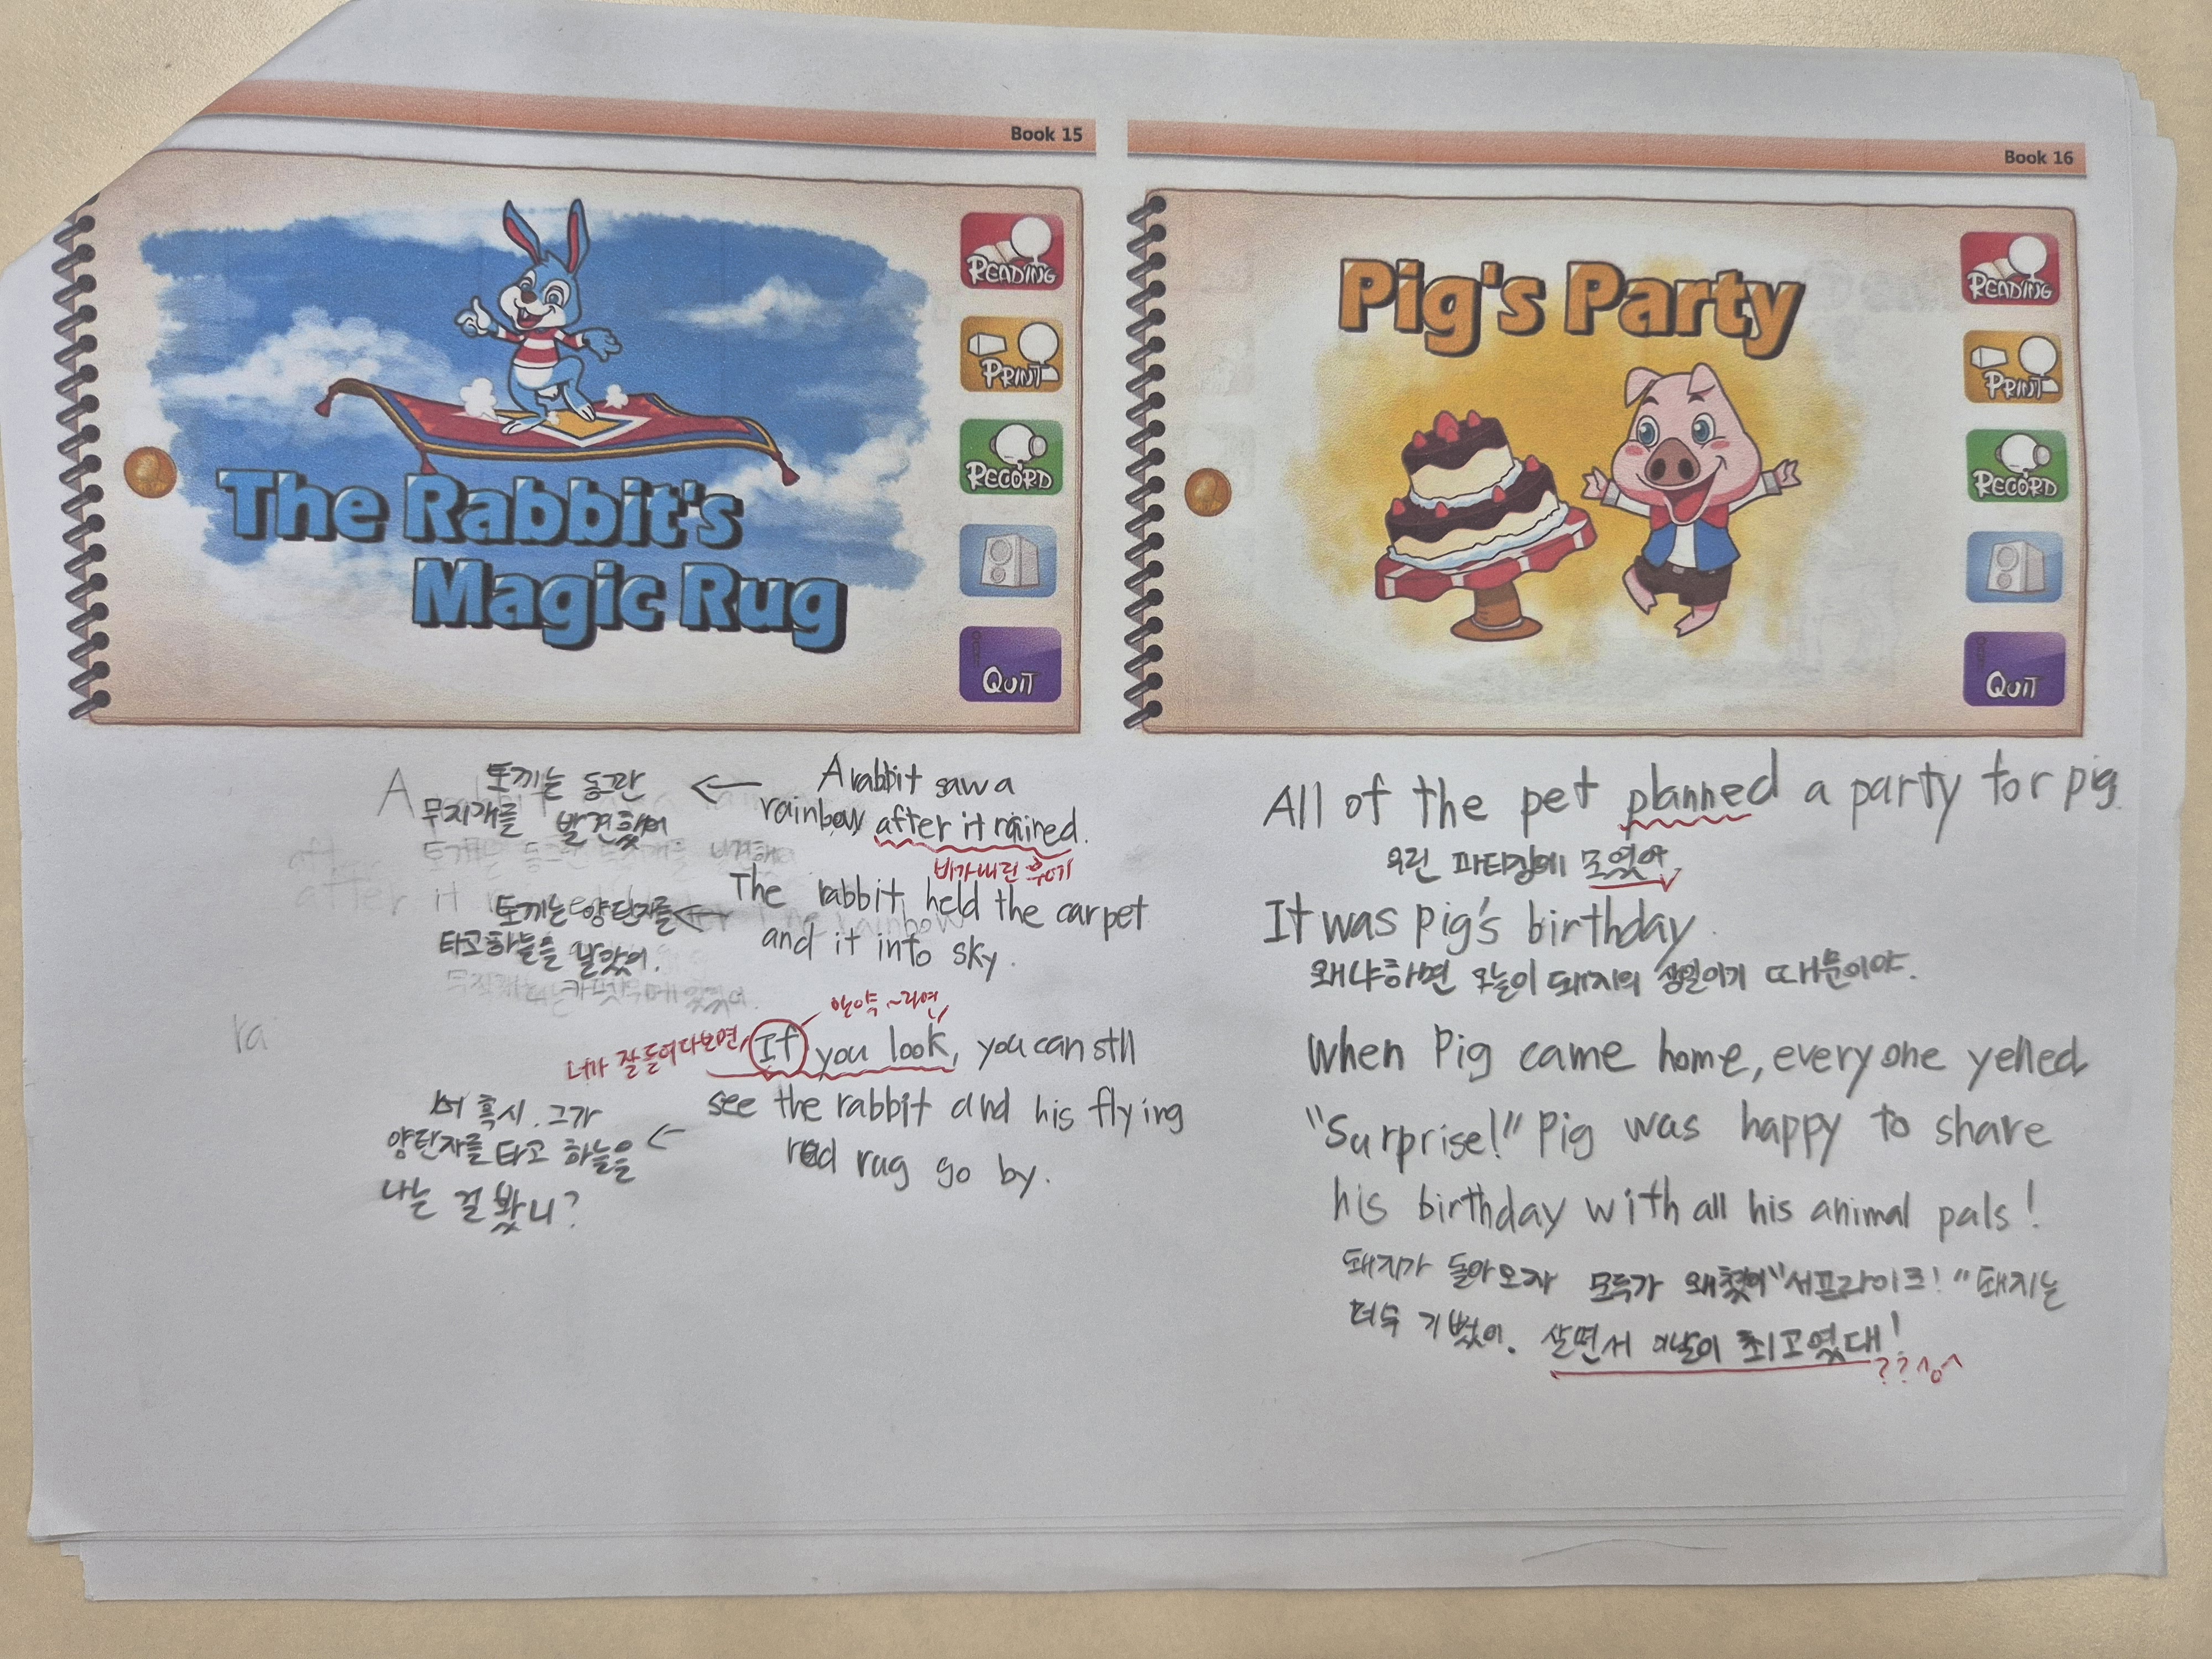 Book 15
READING
PRINT
RECORD
QUIT
The Rabbit's
Magic Rug
토끼는 동관
무지개를 발견했어
A rabbit saw a
rainbow after it rained.
비가 내린 후에
토끼는 양탄자를
타고 하늘을 날았어.
The rabbit held the carpet
and it into sky.
만약 ~라면,
너가 잘 들여다보면,
If you look, you can stll
see the rabbit and his flying
red rug go by.
혹시 그가
양탄자를 타고 하늘을
나는 걸 봤니?
A
after it
ra
Book 16
READING
PRINT
RECORD
QUIT
Pig's Party
All of the pet planned a party for pig
우린 파티장에 모였어
It was pig's birthday.
왜냐하면 오늘이 돼지의 생일이기 때문이야.
When Pig came home, everyone yelled
"Surprise!" Pig was happy to share
his birthday with all his animal pals!
돼지가 돌아오자 모두가 왜쳤어 "서프라이즈!" 돼지는
너무 기뻤어. 살면서 이날이 최고였대!
??^o^